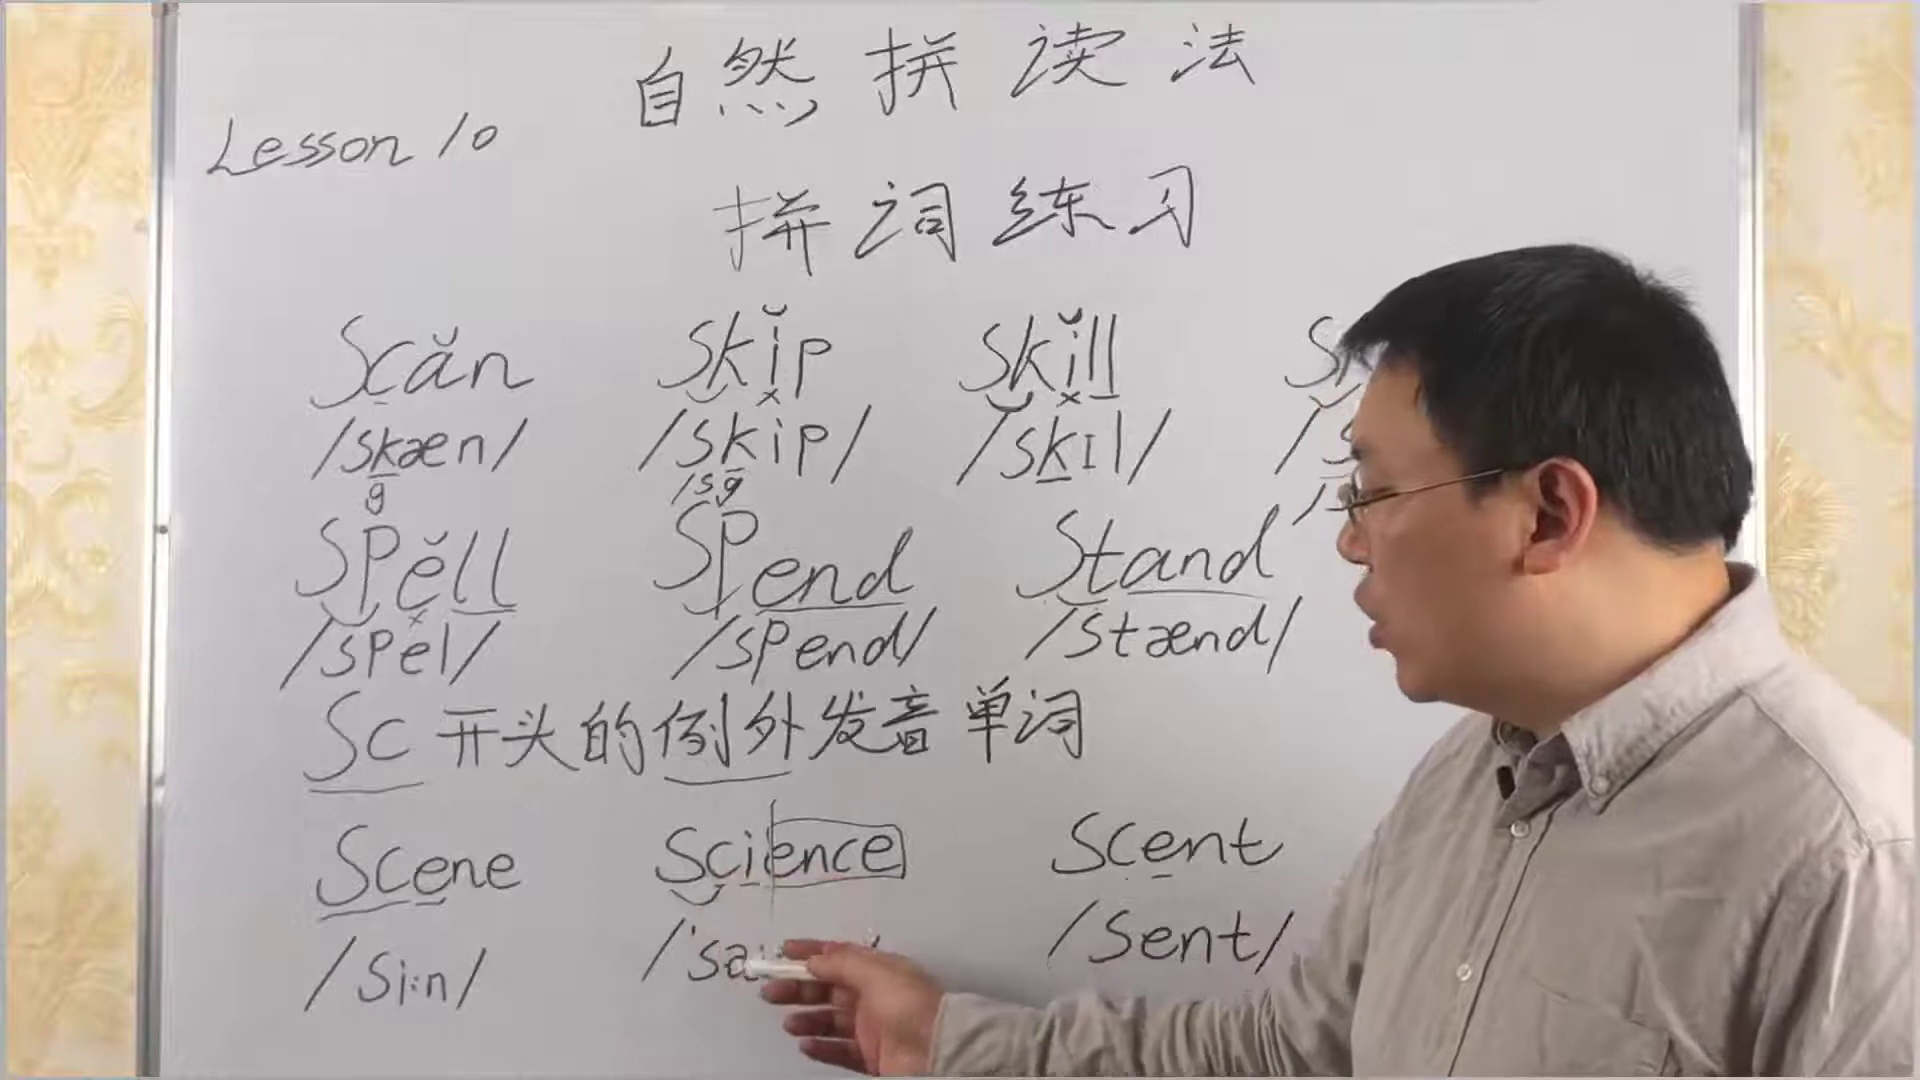 自然拼读法
Lesson 10
拼词练习
Scăn skĭp skĭll
/skæn/ /skip/ /skɪl/
g /sg
spĕll spend stand
/spel/ /spend/ /stænd/
Sc开头的例外发音单词
Scene science scent
/si:n/ /sent/